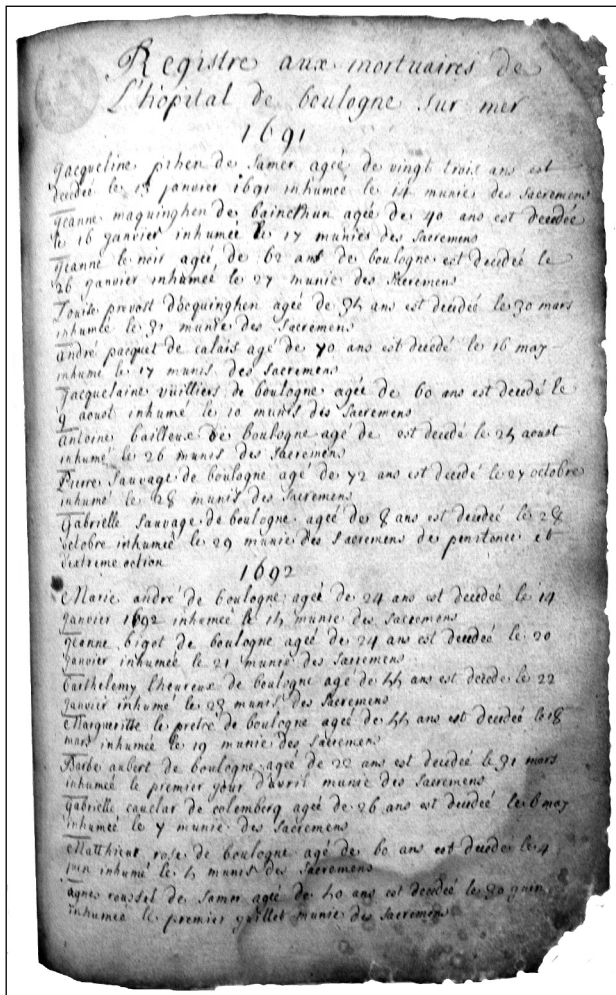 Registre aux mortuaires de
L'hôpital de boulogne sur mer
1691
Jacqueline pihen de Samer ageé de vingt trois ans est
decedeé le 13 janvier 1691 inhumeé le 14 munie des Sacremens
Jeanne maquinghen de bainethun ageé de 40 ans est decedeé
le 16 janvier inhumeé le 17 munies des Sacremens
Jeanne le noir ageé de 62 ans de boulogne est decedeé le
26 janvier inhumeé le 27 munie des Sacremens
Louise prevost d'ocquinghen ageé de 35 ans est decedeé le 30 mars
inhumeé le 31 munie des Sacremens
andré pacquet de calais agé de 70 ans est decedé le 16 may
inhumé le 17 munis des Sacremens
Jacquelaine vüilliers de boulogne ageé de 60 ans est decedé le
9 aoust inhumé le 10 munis des Sacremens
Antoine bailleux de Boulogne agé de est decedé le 25 aoust
inhumé le 26 munis des Sacremens
Pierre Sauvage de boulogne agé de 72 ans est decedé le 27 octobre
inhumé le 28 munis des Sacremens
Gabrielle Sauvage de boulogne ageé de 8 ans est decedeé le 28
octobre inhumeé le 29 munie des Sacremens de penitence et
d'extreme onction
1692
Marie andré de Boulogne ageé de 24 ans est decedeé le 14
janvier 1692 inhumeé le 15 munie des Sacremens
Jeanne bigot de boulogne ageé de 24 ans est decedeé le 20
janvier inhumeé le 21 munie des Sacremens
Barthelemy l'heureux de boulogne agé de 55 ans est decede le 22
janvier inhumé le 23 munis des Sacremens
Marguerite le pretre de boulogne ageé de 55 ans est decedeé le 18
mars inhumeé le 19 munie des Sacremens
Barbe aubert de boulogne ageé de 22 ans est decedeé le 31 mars
inhumeé le premier jour d'avril munie des Sacremens
Gabrielle cauclar de colemberg ageé de 26 ans est decedeé le 6 may
inhumeé le 7 munie des Sacremens
Matthieu rose de boulogne agé de 60 ans est decede le 4
juin inhumé le 5 munis des Sacremens
Agnes roussel de Samer ageé de 50 ans est decedeé le 30 juin
inhumeé le premier juillet munie des Sacremens